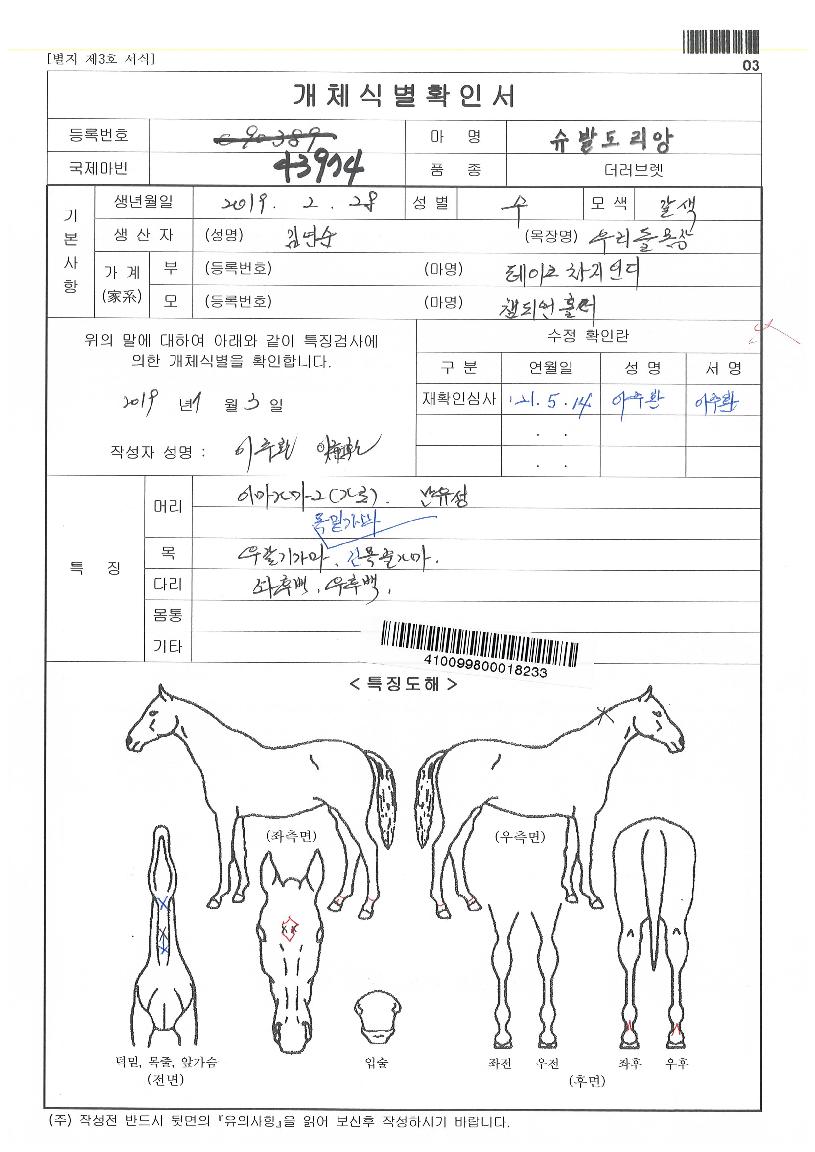 [별지 제3호 서식]
03
개체식별확인서
등록번호 090389 마 명 슈발도리앙
국제마빈 43974 품 종 더러브렛
기본사항
생년월일 2019. 2. 28 성 별 수 모 색 갈색
생 산 자 (성명) 김연수 (목장명) 우리들목장
가 계 (家系) 부 (등록번호) (마명) 테이크차지인디
모 (등록번호) (마명) 챔피언홀러
위의 말에 대하여 아래와 같이 특징검사에
의한 개체식별을 확인합니다.
2019 년 월 3 일
작성자 성명 : 이주환
수정 확인란
구 분 연월일 성 명 서 명
재확인심사 '21. 5. 14. 이주환 이주환
. .
. .
특 징
머리 이마가마-2(지름). 반유성
턱밑가마
목 우갈기가마, 목줄가마.
다리 좌후백, 우후백,
몸통
기타
410099800018233
<특징도해>
(좌측면) (우측면)
턱밑, 목줄, 앞가슴
(전면)
입술
좌전 우전 좌후 우후
(후면)
(주) 작성전 반드시 뒷면의 『유의사항』을 읽어 보신후 작성하시기 바랍니다.